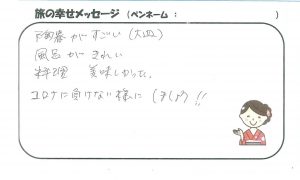 旅の幸せメッセージ (ペンネーム： )
陶器がすごい(大皿)
風呂がきれい
料理 美味しかった。
コロナに負けない様にしましょう!!